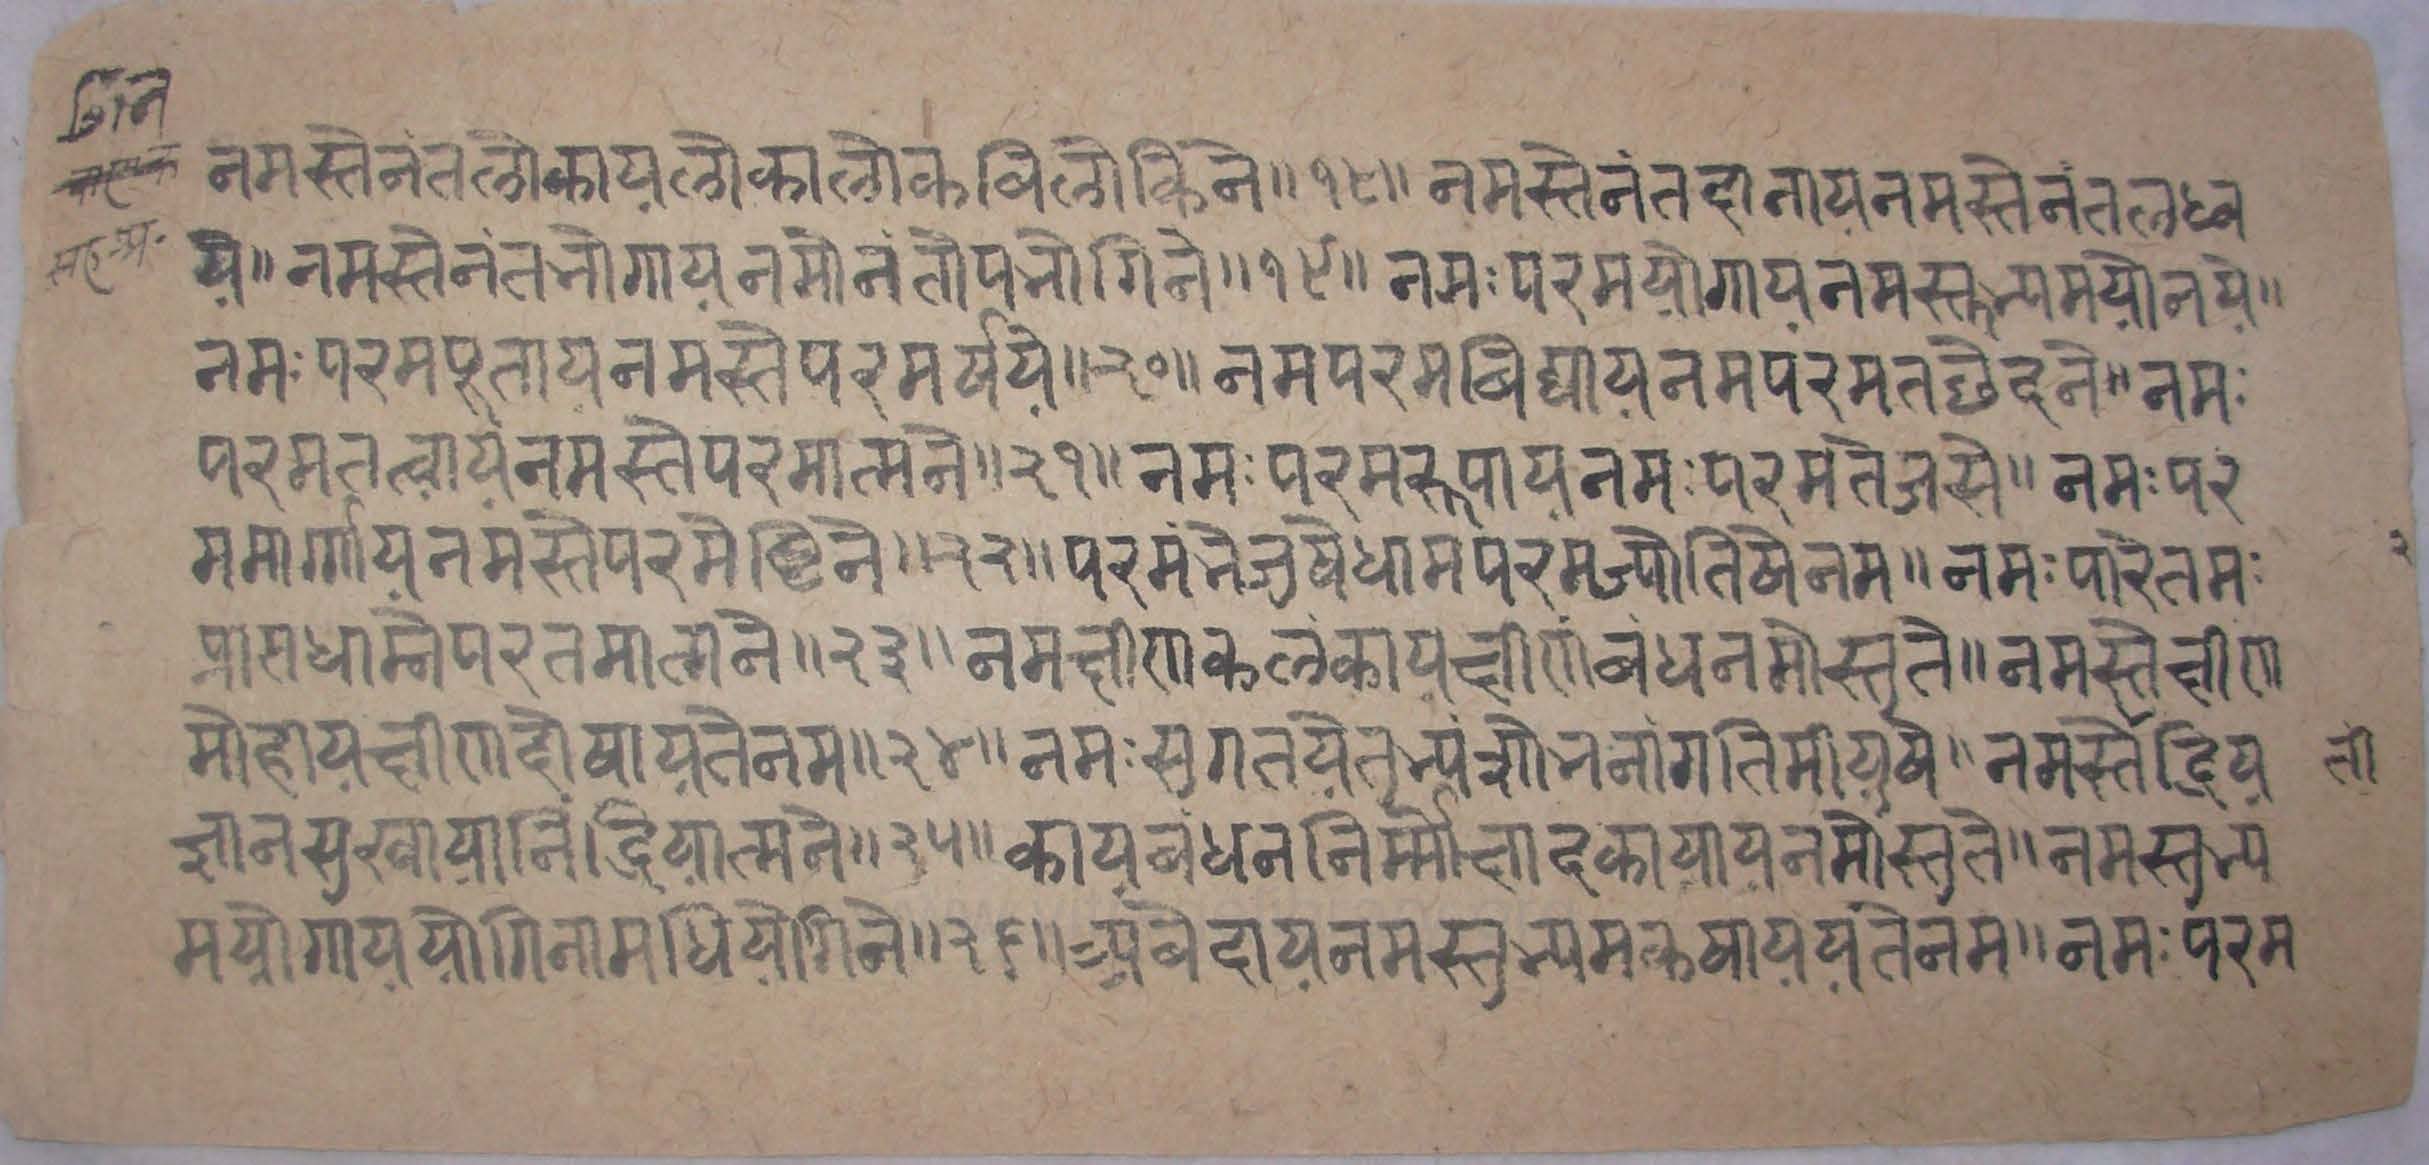 जिन
सहस्र.
नमस्तेनंतलोकायलोकालोकविलोकिने॥१८॥नमस्तेनंतदानायनमस्तेनंतलब्ध
ये॥नमस्तेनंतभोगायनमोनंतोपभोगिने॥१९॥नमःपरमयोगायनमस्तुभ्यमयोनये॥
नमःपरमपूतायनमस्तेपरमर्षये॥२०॥नमपरमविद्यायनमपरमतछेदने॥नमः
परमतत्वायनमस्तेपरमात्मने॥२१॥नमःपरमरूपायनमःपरमतेजसे॥नमःपर
ममार्गायनमस्तेपरमेष्टिने॥२२॥परमंभेजुषेधामपरमज्योतिषेनम॥नमःपारेतमः
प्राप्तधाम्नेपरतमात्मने॥२३॥नमक्षीणकलंकायक्षीणबंधनमोस्तुते॥नमस्तेक्षीण
मोहायक्षीणदोषायतेनम॥२४॥नमःसुगतयेतुभ्यंशोभनांगतिमीयुषे॥नमस्तेंद्रिय
ती
ज्ञानसुखायानिंद्रियात्मने॥२५॥कायबंधननिर्मोक्षादकायायनमोस्तुते॥नमस्तुभ्य
मयोगाययोगिनामधियोगिने॥२६॥अवेदायनमस्तुभ्यमकषाययतेनम॥नमःपरम
२